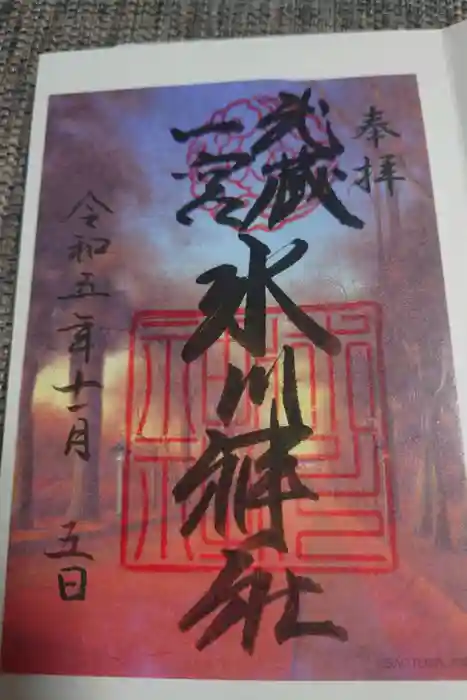 奉拝
武蔵
一宮
氷川神社
令和五年十一月
五日